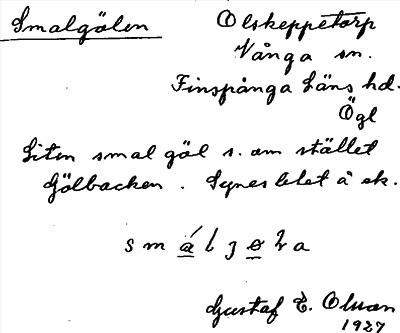 Smalgölen
Olskeppetorp
Vånga sn.
Finspånga Läns hd.
Ögl
Liten smal göl s. om stället
Gölbacken. Synes blet å ek.
s m a l j ө
Gustaf E. Olsson
1927